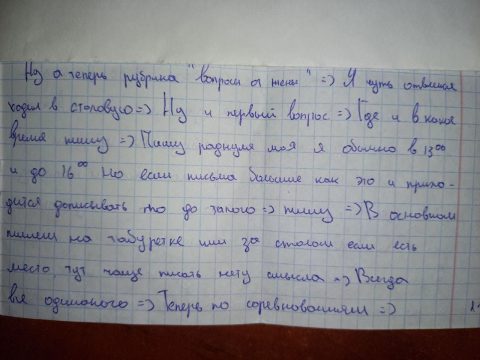 Ну а теперь рубрика "вопросы от жены" => Я чуть отвлекся
ходил в столовую => Ну и первый вопрос => Где и в какое
время пишу => Пишу роднуля моя я обычно в 13⁰⁰
и до 16⁰⁰ Но если письма большие как это и прихо-
дится дописывать то до такого => пишу => В основном
пишем на табуретке или за столом если есть
место тут чаще писать нету смысла => Всегда
все одиноково => Теперь по соревнованиям =>